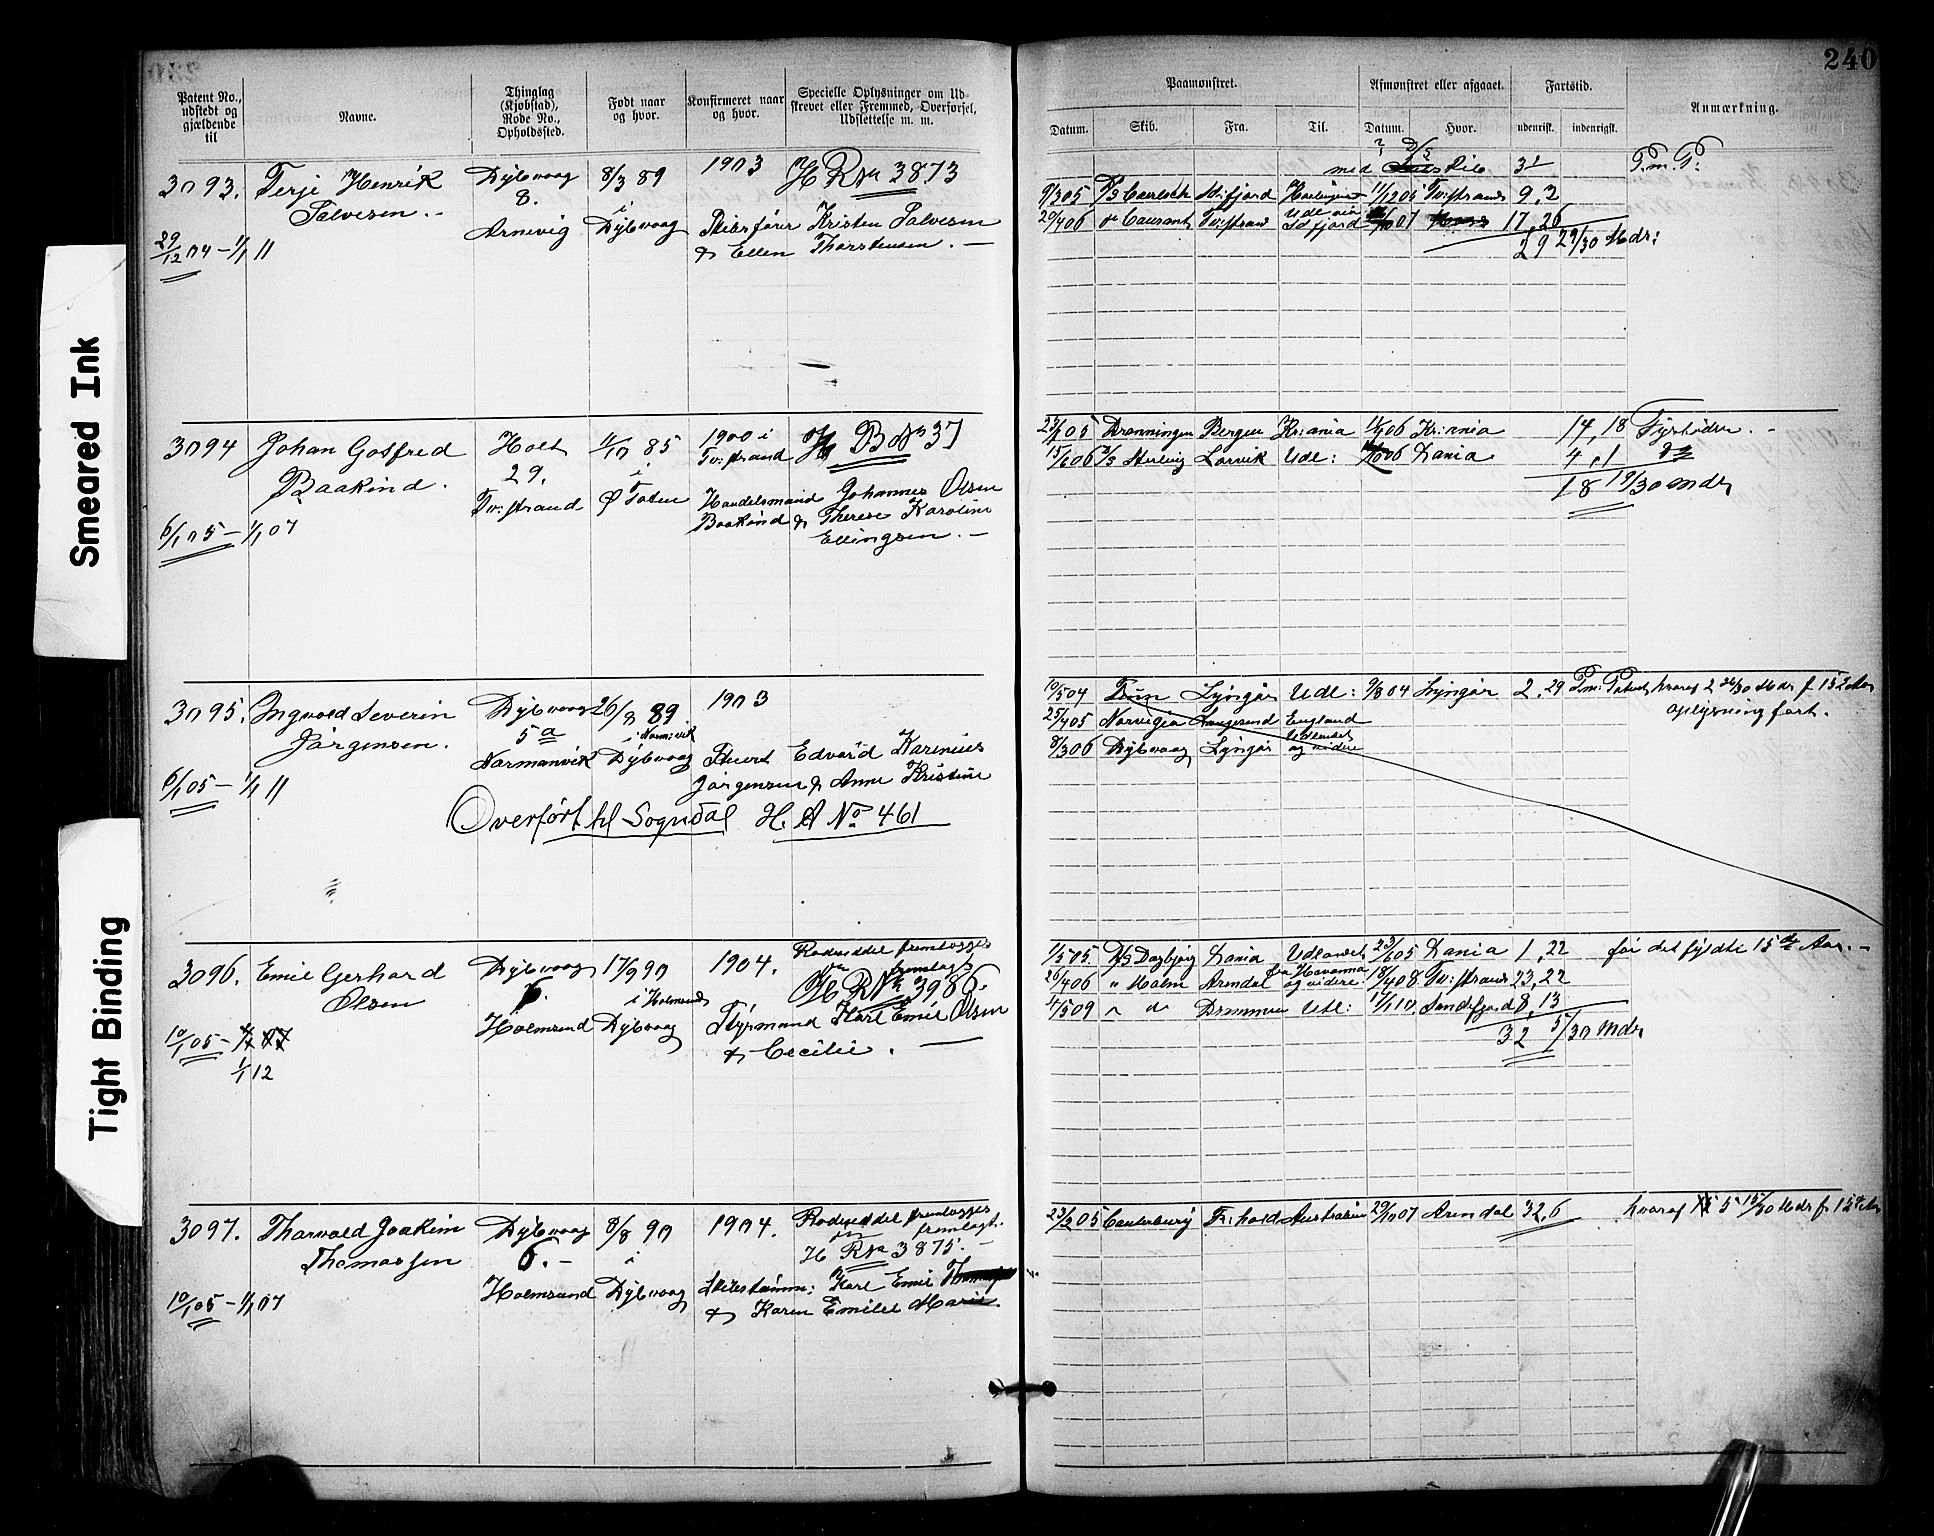 240
Patent No., udstedt og gjældende til
Navne.
Thinglag (Kjøbstad), Rode No., Opholdssted.
Født naar og hvor.
Konfirmeret naar og hvor.
Specielle Oplysninger om Udskrevet eller Fremmed, Overførsel, Udslettelse m. m.
Paamønstret.
Afmønstret eller afgaaet.
Fartstid.
Anmærkning.
Datum.
Skib.
Fra.
Til.
Datum.
Hvor.
udenrigsk.
indenrigsk.
3093. Terje Henrik Dybvaag 8/3 89 1903 H R No 3873
Salvesen. 8. i
Arnevig Dybvaag Skibsfører Kristen Salvesen
29/12 04 – 1/1 11 & Ellen Thorstensen. —
med P.m. P:
9/3 05 11/12 05 Tv:strand 9, 2
20/4 06 Tv:strand 17, 26
29 29/30 Mdr:
3094 Johan Gotfred Holt 11/10 85 1900 i H B No 37
Baakind. 29. i Tv:strand
Tv:strand Ø Toten Handelsmand Johannes Olsen
6/1 05 – 1/1 07 Baakind & Therese Karoline
Ellingsen. —
Dronningen Bergen Kr:ania Kr:ania 14, 18 Fyrbøder. -
15/6 06 Larvik Udl: Lania 4, 1
18 19/30 Mdr
3095. Ingvald Severin Dybvaag 26/8 89 1903
Jørgensen. 5 a i Narm:vik
Narmanvik Dybvaag Stuert Edvard Karenius
6/1 05 – 1/1 11 Jørgensen & Anne Kristine
Overført til Sogndal H. A No 461
10/5 04 Lyngør Udl: 9/8 04 Lyngør 2, 29 P.m: hvoraf 2 Mdr f 15 Aar
25/4 05 Norvegia Langesund England oplysning fart.
8/3 06 Dybvaag Lyngør Udlandet og videre
3096. Emil Gerhard Dybvaag 17/9 90 1904. Rodseddel fremlægges
Olsen 6. i Holmsund fremlagt
H R No 3986.
Holmsund Dybvaag Styrmand Karl Emil Olsen
10/1 05 – & Cecilie. —
1/1 12
1/5 05 Dagbjørg Lania Udlandet 23/6 05 Lania 1, 22 før det fyldte 15de Aar. -
26/4 06 " Malm Arendal fra Havanna og videre 18/4 08 Tv:strand 23, 22
4/5 09 " " Drammen Udl: 17/1 10 Sandefjord 8, 13
32 5/30 Mdr
3097. Thorvald Joakim Dybvaag 8/8 90 1904. Rodseddel fremlægges
Thomassen 6. – i fremlagt.
H R No 3875. —
Holmsund Dybvaag Skibstømm: Karl Emil
10/1 05 – 1/1 07 & Karen Emilie Marie.
23/2 05 Canterbury Fr:hald Australien 29/10 07 Arendal 32, 6 hvoraf 5 15/30 Mdr f 15de Aar
Smeared Ink
Tight Binding